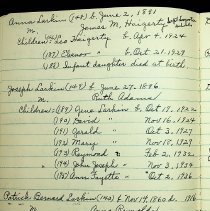 Anna Larkin (148) b. June 2, 1881
m. James M. Haigerty
Children: Leo Haigerty b. Apr 4, 1924
(187) Eleanor " b. Oct. 21, 1929
(188) Infant daughter died at birth.
Joseph Larkin (149) b. June 27-1886
m. Ruth Adams
Children: (189) June Larkin b. Oct 19, 1922
(190) David " b. Nov 16, 1924
(191) Gerald " b. Oct 3, 1927
(192) Mary " b. Nov 18, 1929
(193) Raymond " b. Feb 2, 1932
(194) John Joseph " b. 3, 1934
(195) Ann Fayette " b. Oct 2, 1936
Patrick Bernard Larkin (140) b. Nov 19, 1860 d. 1916
m. Anna